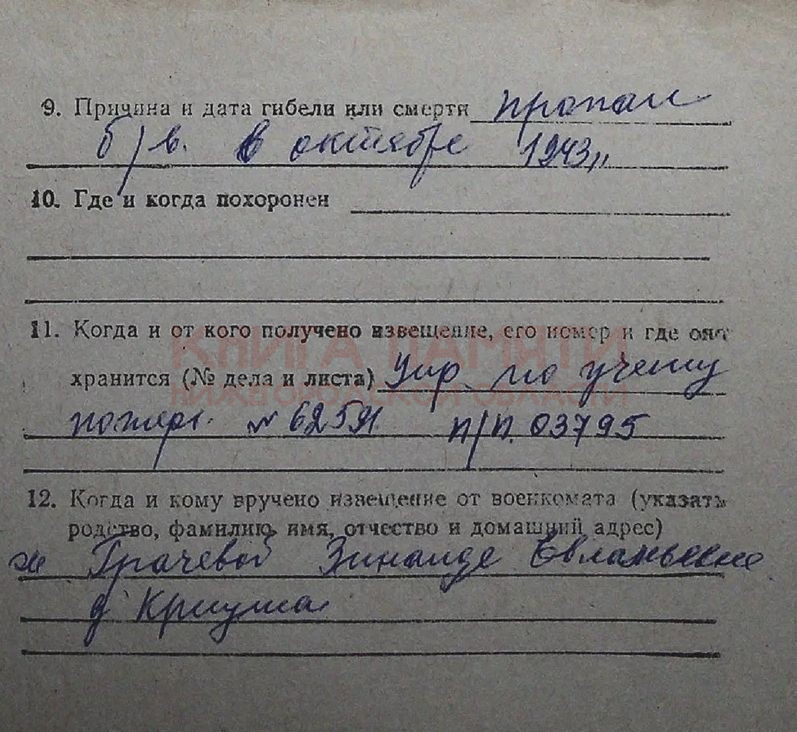 9. Причина и дата гибели или смерти пропал
б/в. в октябре 1943
10. Где и когда похоронен
11. Когда и от кого получено извещение, его номер и где оно
хранится (№ дела и листа) Упр. по учету
потерь. № 6259 п/п. 03795
КНИГА ПАМЯТИ
НИЖЕГОРОДСКОЙ ОБЛАСТИ
12. Когда и кому вручено извещение от военкомата (указать
родство, фамилию, имя, отчество и домашний адрес)
ж Грачевой Зинаиде
д Криуша